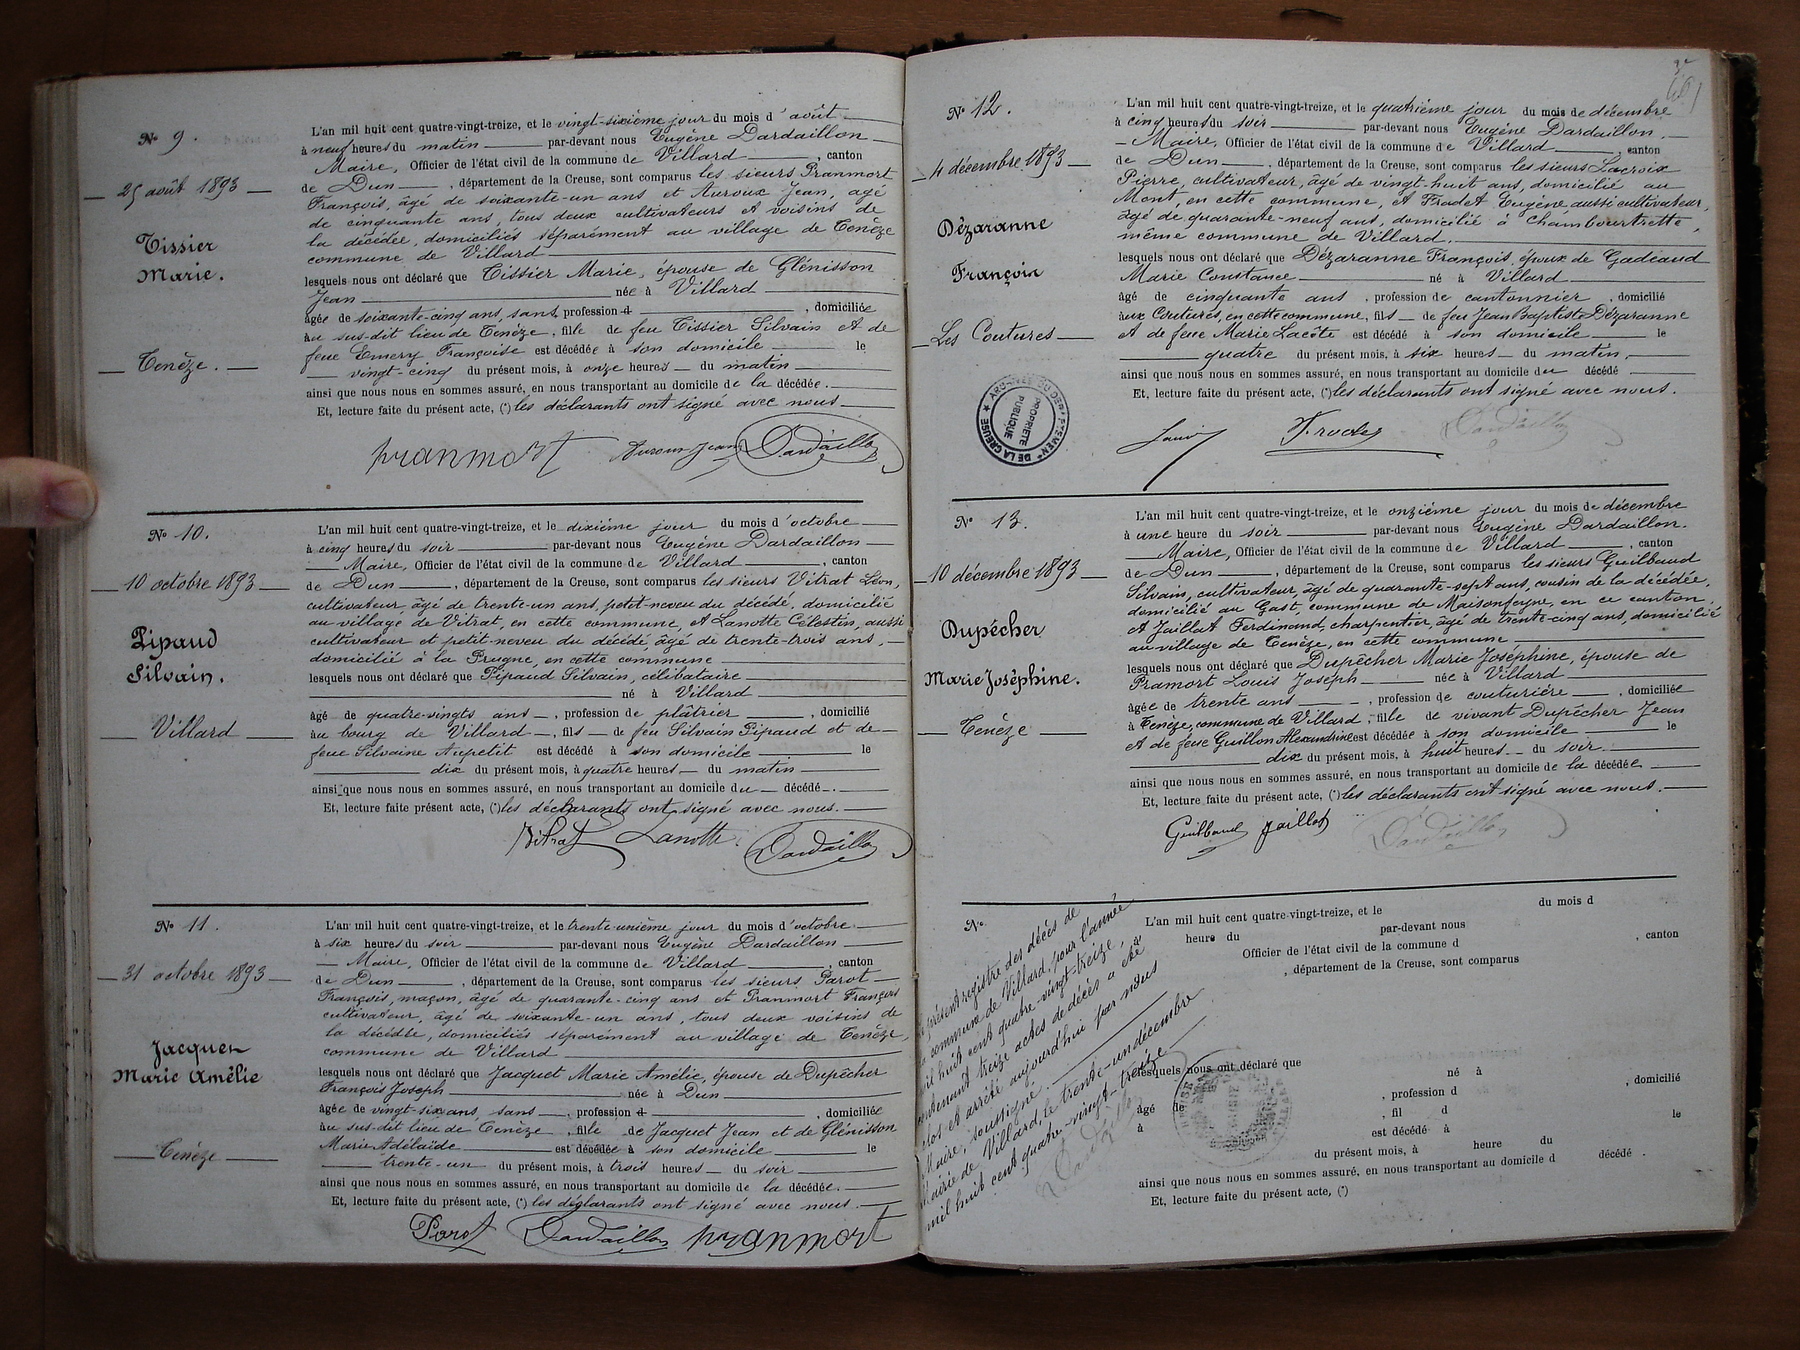 N° 9.
25 août 1893
Tissier
Marie.
Tenèze.
L'an mil huit cent quatre-vingt-treize, et le vingt-sixième jour du mois d'août
à neuf heures du matin par-devant nous Eugène Dardaillon
Maire, Officier de l'état civil de la commune de Villard, canton
de Dun, département de la Creuse, sont comparus les sieurs Pranmort
François, âgé de soixante-un ans et Auroux Jean, âgé
de cinquante ans, tous deux cultivateurs et voisins de
la décédée, domiciliés séparément au village de Tenèze
commune de Villard
lesquels nous ont déclaré que Tissier Marie, épouse de Glénisson
Jean née à Villard
âgée de soixante-cinq ans, sans profession d, domiciliée
au sus-dit lieu de Tenèze, fille de feu Tissier Silvain et de
feue Emery Françoise est décédée à son domicile le
vingt-cinq du présent mois, à onze heures du matin
ainsi que nous nous en sommes assuré, en nous transportant au domicile de la décédée.
Et, lecture faite du présent acte, (*) les déclarants ont signé avec nous
pranmort Auroux Jean Dardaillon
N° 10.
10 octobre 1893
Pipaud
Silvain.
Villard
L'an mil huit cent quatre-vingt-treize, et le dixième jour du mois d'octobre
à cinq heures du soir par-devant nous Eugène Dardaillon
Maire, Officier de l'état civil de la commune de Villard, canton
de Dun, département de la Creuse, sont comparus les sieurs Vitrat Léon,
cultivateur, âgé de trente-un ans, petit-neveu du décédé, domicilié
au village de Vitrat, en cette commune, et Lanotte Célestin, aussi
cultivateur et petit-neveu du décédé, âgé de trente-trois ans,
domicilié à la Prugne, en cette commune
lesquels nous ont déclaré que Pipaud Silvain, célibataire
né à Villard
âgé de quatre-vingts ans, profession de plâtrier, domicilié
au bourg de Villard, fils de feu Silvain Pipaud et de
feue Silvaine Aupetit est décédé à son domicile le
dix du présent mois, à quatre heures du matin
ainsi que nous nous en sommes assuré, en nous transportant au domicile du décédé.
Et, lecture faite présent acte, (*) les déclarants ont signé avec nous.
Vitrat Lanotte. Dardaillon
N° 11.
31 octobre 1893
Jacquet
Marie Amélie
Tenèze
L'an mil huit cent quatre-vingt-treize, et le trente-unième jour du mois d'octobre
à six heures du soir par-devant nous Eugène Dardaillon
Maire, Officier de l'état civil de la commune de Villard, canton
de Dun, département de la Creuse, sont comparus les sieurs Parot
François, maçon, âgé de quarante-cinq ans et Pranmort François
cultivateur, âgé de soixante-un ans, tous deux voisins de
la décédée, domiciliés séparément au village de Tenèze,
commune de Villard
lesquels nous ont déclaré que Jacquet Marie Amélie, épouse de Dupêcher
François Joseph née à Dun
âgée de vingt-six ans, sans, profession d, domiciliée
au sus-dit lieu de Tenèze, fille de Jacquet Jean et de Glénisson
Marie-Adélaïde est décédée à son domicile le
trente-un du présent mois, à trois heures du soir
ainsi que nous nous en sommes assuré, en nous transportant au domicile de la décédée.
Et, lecture faite du présent acte, (*) les déclarants ont signé avec nous.
Parot Dardaillon pranmort
N° 12.
4 décembre 1893
Dézaranne
François
Les Coutures
L'an mil huit cent quatre-vingt-treize, et le quatrième jour du mois de décembre
à cinq heures du soir par-devant nous Eugène Dardaillon.
Maire, Officier de l'état civil de la commune de Villard, canton
de Dun, département de la Creuse, sont comparus les sieurs Lacroix
Pierre, cultivateur, âgé de vingt-huit ans, domicilié au
Mont, en cette commune, et Fradet Eugène aussi cultivateur,
âgé de quarante-neuf ans, domicilié à Chambourtiette,
même commune de Villard.
lesquels nous ont déclaré que Dézaranne François, époux de Gadeaud
Marie Constance né à Villard
âgé de cinquante ans, profession de cantonnier, domicilié
aux Coutures, en cette commune, fils de feu Jean Baptiste Dézaranne
et de feue Marie Lacôte est décédé à son domicile le
quatre du présent mois, à six heures du matin,
ainsi que nous nous en sommes assuré, en nous transportant au domicile du décédé
Et, lecture faite du présent acte, (*) les déclarants ont signé avec nous.
Dardaillon
DE LA CREUSE
PROPRIÉTÉ
PUBLIQUE
N° 13.
10 décembre 1893
Dupêcher
Marie Joséphine.
Tenèze
L'an mil huit cent quatre-vingt-treize, et le onzième jour du mois de décembre
à une heure du soir par-devant nous Eugène Dardaillon.
Maire, Officier de l'état civil de la commune de Villard, canton
de Dun, département de la Creuse, sont comparus les sieurs Guilbaud
Silvain, cultivateur, âgé de quarante-sept ans, cousin de la décédée,
domicilié au Gast, commune de Maisonfeyne, en ce canton
et Jaillat Ferdinand, charpentier, âgé de trente-cinq ans, domicilié
au village de Tenèze, en cette commune
lesquels nous ont déclaré que Dupêcher Marie Joséphine, épouse de
Pramort Louis Joseph née à Villard
âgée de trente ans, profession de couturière, domiciliée
à Tenèze, commune de Villard, fille de vivant Dupêcher Jean
et de feue Guillon Alexandrine est décédée à son domicile le
dix du présent mois, à huit heures du soir.
ainsi que nous nous en sommes assuré, en nous transportant au domicile de la décédée
Et, lecture faite du présent acte, (*) les déclarants ont signé avec nous.
Guilbaud Jaillat Dardaillon
N°
L'an mil huit cent quatre-vingt-treize, et le du mois d
heure du par-devant nous
Officier de l'état civil de la commune d, canton
, département de la Creuse, sont comparus
lesquels nous ont déclaré que
né à
âgé de, profession d, domicilié
à, fil d
est décédé à le
du présent mois, à heure du
ainsi que nous nous en sommes assuré, en nous transportant au domicile d décédé.
Et, lecture faite du présent acte, (*)
présent registre des décès de
commune de Villard, pour l'année
mil huit cent quatre vingt-treize,
contenant treize actes de décès a été
clos et arrêté aujourd'hui par nous
Maire, soussigné.
Mairie de Villard, le trente-un décembre
mil huit cent quatre-vingt-treize
Dardaillon